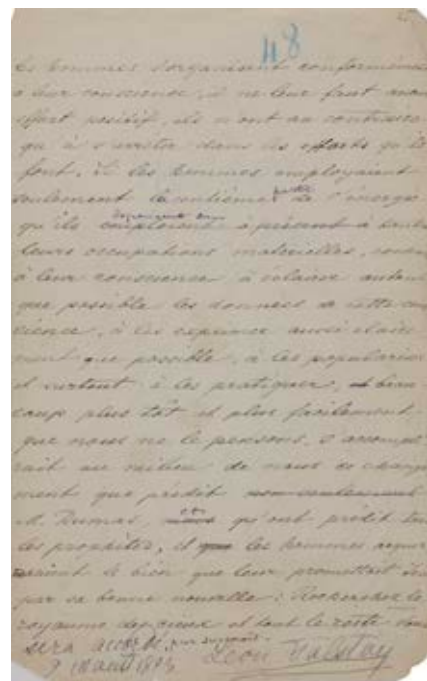 48
les hommes s'organisent conformément
à leur conscience, il ne leur faut aucun
effort positif, ils n'ont au contraire
qu'à s'arrêter dans les efforts qu'ils
font. Si les hommes employaient
seulement la centième partie de l'énergie
qu'ils dépensent emploient à présent à toutes
leurs occupations matérielles,
à leur conscience à éclairer autant
que possible les données de cette cons
cience, à les exprimer aussi claire
ment que possible, à les populariser
et surtout à les pratiquer, beau
coup plus tôt et plus facilement
que nous ne le pensons, s'accompli
rait au milieu de nous ce change
ment que prédit non seulement
M. Dumas, et qu'ont prédit tous
les prophètes, et les hommes acquer
raient le bien que leur promettait
par sa bonne nouvelle: Recherchez le
royaume des cieux et tout le reste vous
sera accordé par surcroît.
9 1893 Léon Tolstoy